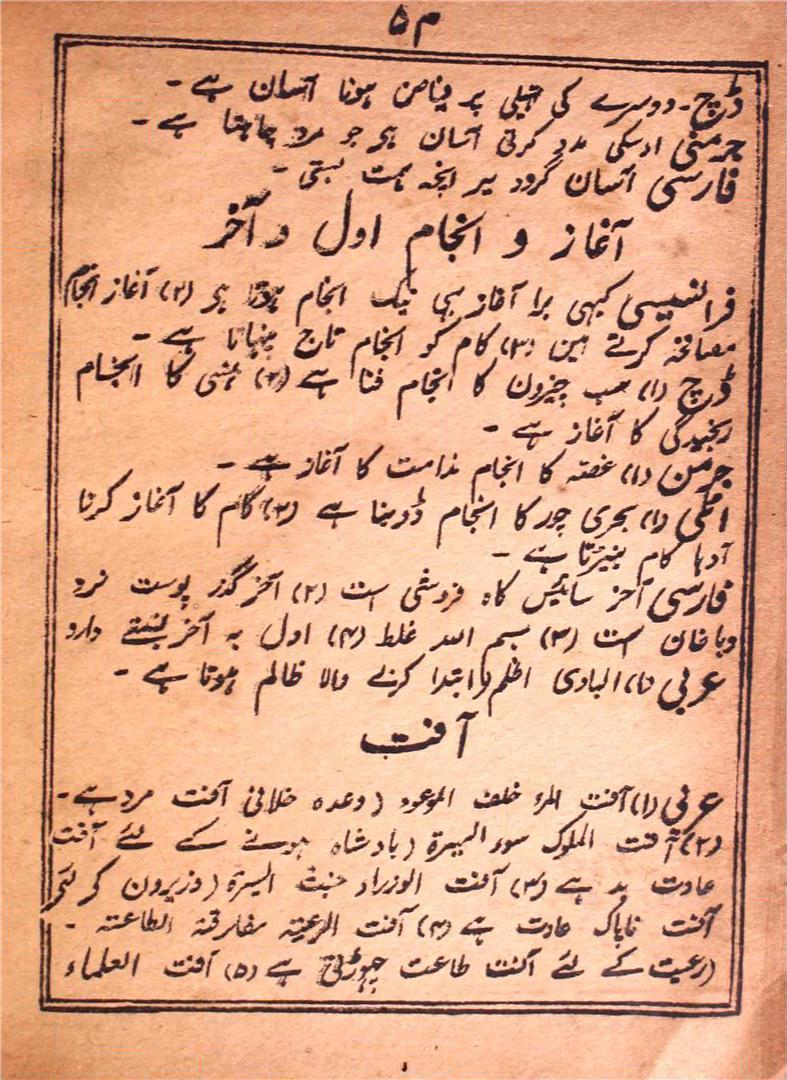 ۵۴
ڈچ۔ دوسرے کی تہیلی پر فیاض ہونا آسان ہے۔
جرمنی اوسکی مدد کرنی آسان ہی جو مدد چاہتا ہے۔
فارسی آسان گرود بر انچہ ہمت بستی۔
آغاز و انجام اول و آخر
فرانسیسی کبہی برا آغاز ہی نیک انجام ہوتا ہی (۲) آغاز انجام
مصافحہ کرتے ہین (۳) کام کو انجام تاج پنہاتا ہے۔
ڈچ (۱) سب چیزون کا انجام فنا ہے (۲) ہنسی کا انجام
رنجیدگی کا آغاز ہے۔
جرمن (۱) غصہ کا انجام ندامت کا آغاز ہے۔
اٹلی (۱) بحری چور کا انجام ڈوبنا ہے (۲) کام کا آغاز کرنا
آدہا کام نبیڑتا ہے۔
فارسی آخر سائیس کاہ فروشی است (۲) آخر گذر پوست نزد
دباغان است (۳) بسم اللہ غلط (۴) اول بہ آخر نسبتے دارد
عربی (۱) البادی اظلم (ابتدا کرنے والا ظالم ہوتا ہے۔
آفت
عربی (۱) آفت المرء خلف الموعود (وعدہ خلافی آفت مرد ہے۔
(۲) آفت الملوک سوء السیرۃ (بادشاہ ہونے کے لئے آفت
عادت بد ہے (۳) آفت الوزراء خبث السیرۃ (وزیرون کر لئی
آفت ناپاک عادت ہے (۴) آفت الرعیتہ مفارقتہ الطاعتہ۔
(رعیت کے لئے آفت طاعت چہوڑنی ہے (۵) آفت العلماء